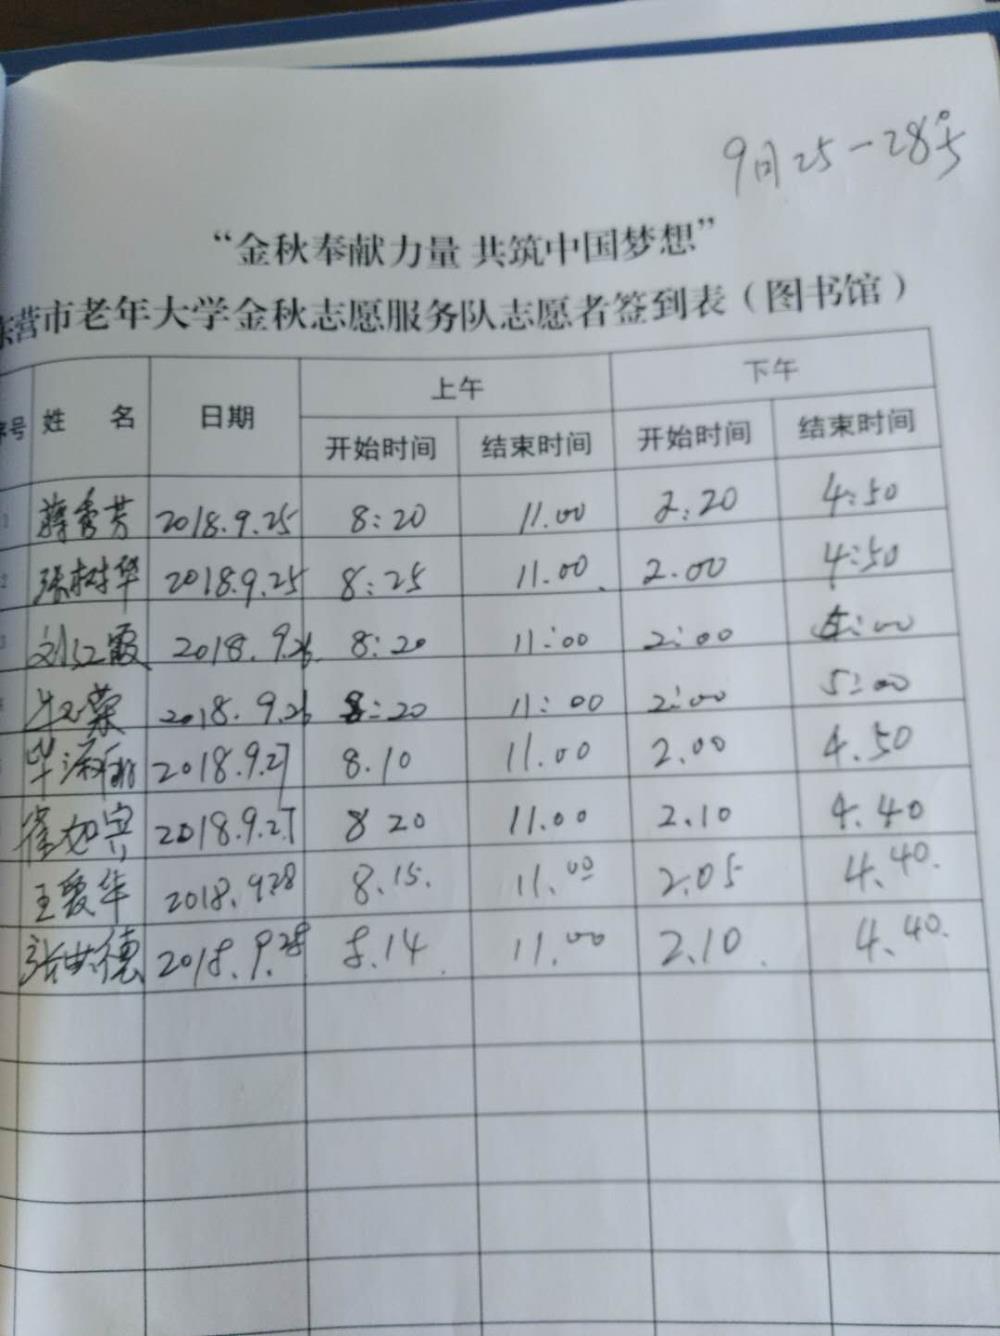 9月25-28号
“金秋奉献力量 共筑中国梦想”
东营市老年大学金秋志愿服务队志愿者签到表（图书馆）
序号 姓 名 日期 上午 下午
开始时间 结束时间 开始时间 结束时间
1 蒋秀芳 2018.9.25 8:20 11.00 2:20 4:50
2 张树华 2018.9.25 8:25 11.00. 2.00 4:50
3 刘红霞 2018.9.26. 8:20 11:00 2:00 5:00
2018.9.26 8:20 11:00 2:00 5:00
毕淑丽 2018.9.27 8.10 11.00 2.00 4.50
徐如宾 2018.9.27 8 20 11.00 2.10 4.40
王爱华 2018.928 8.15. 11.00 2.05 4.40.
张世德 2018.9.28 8.14. 11.00 2.10. 4.40.